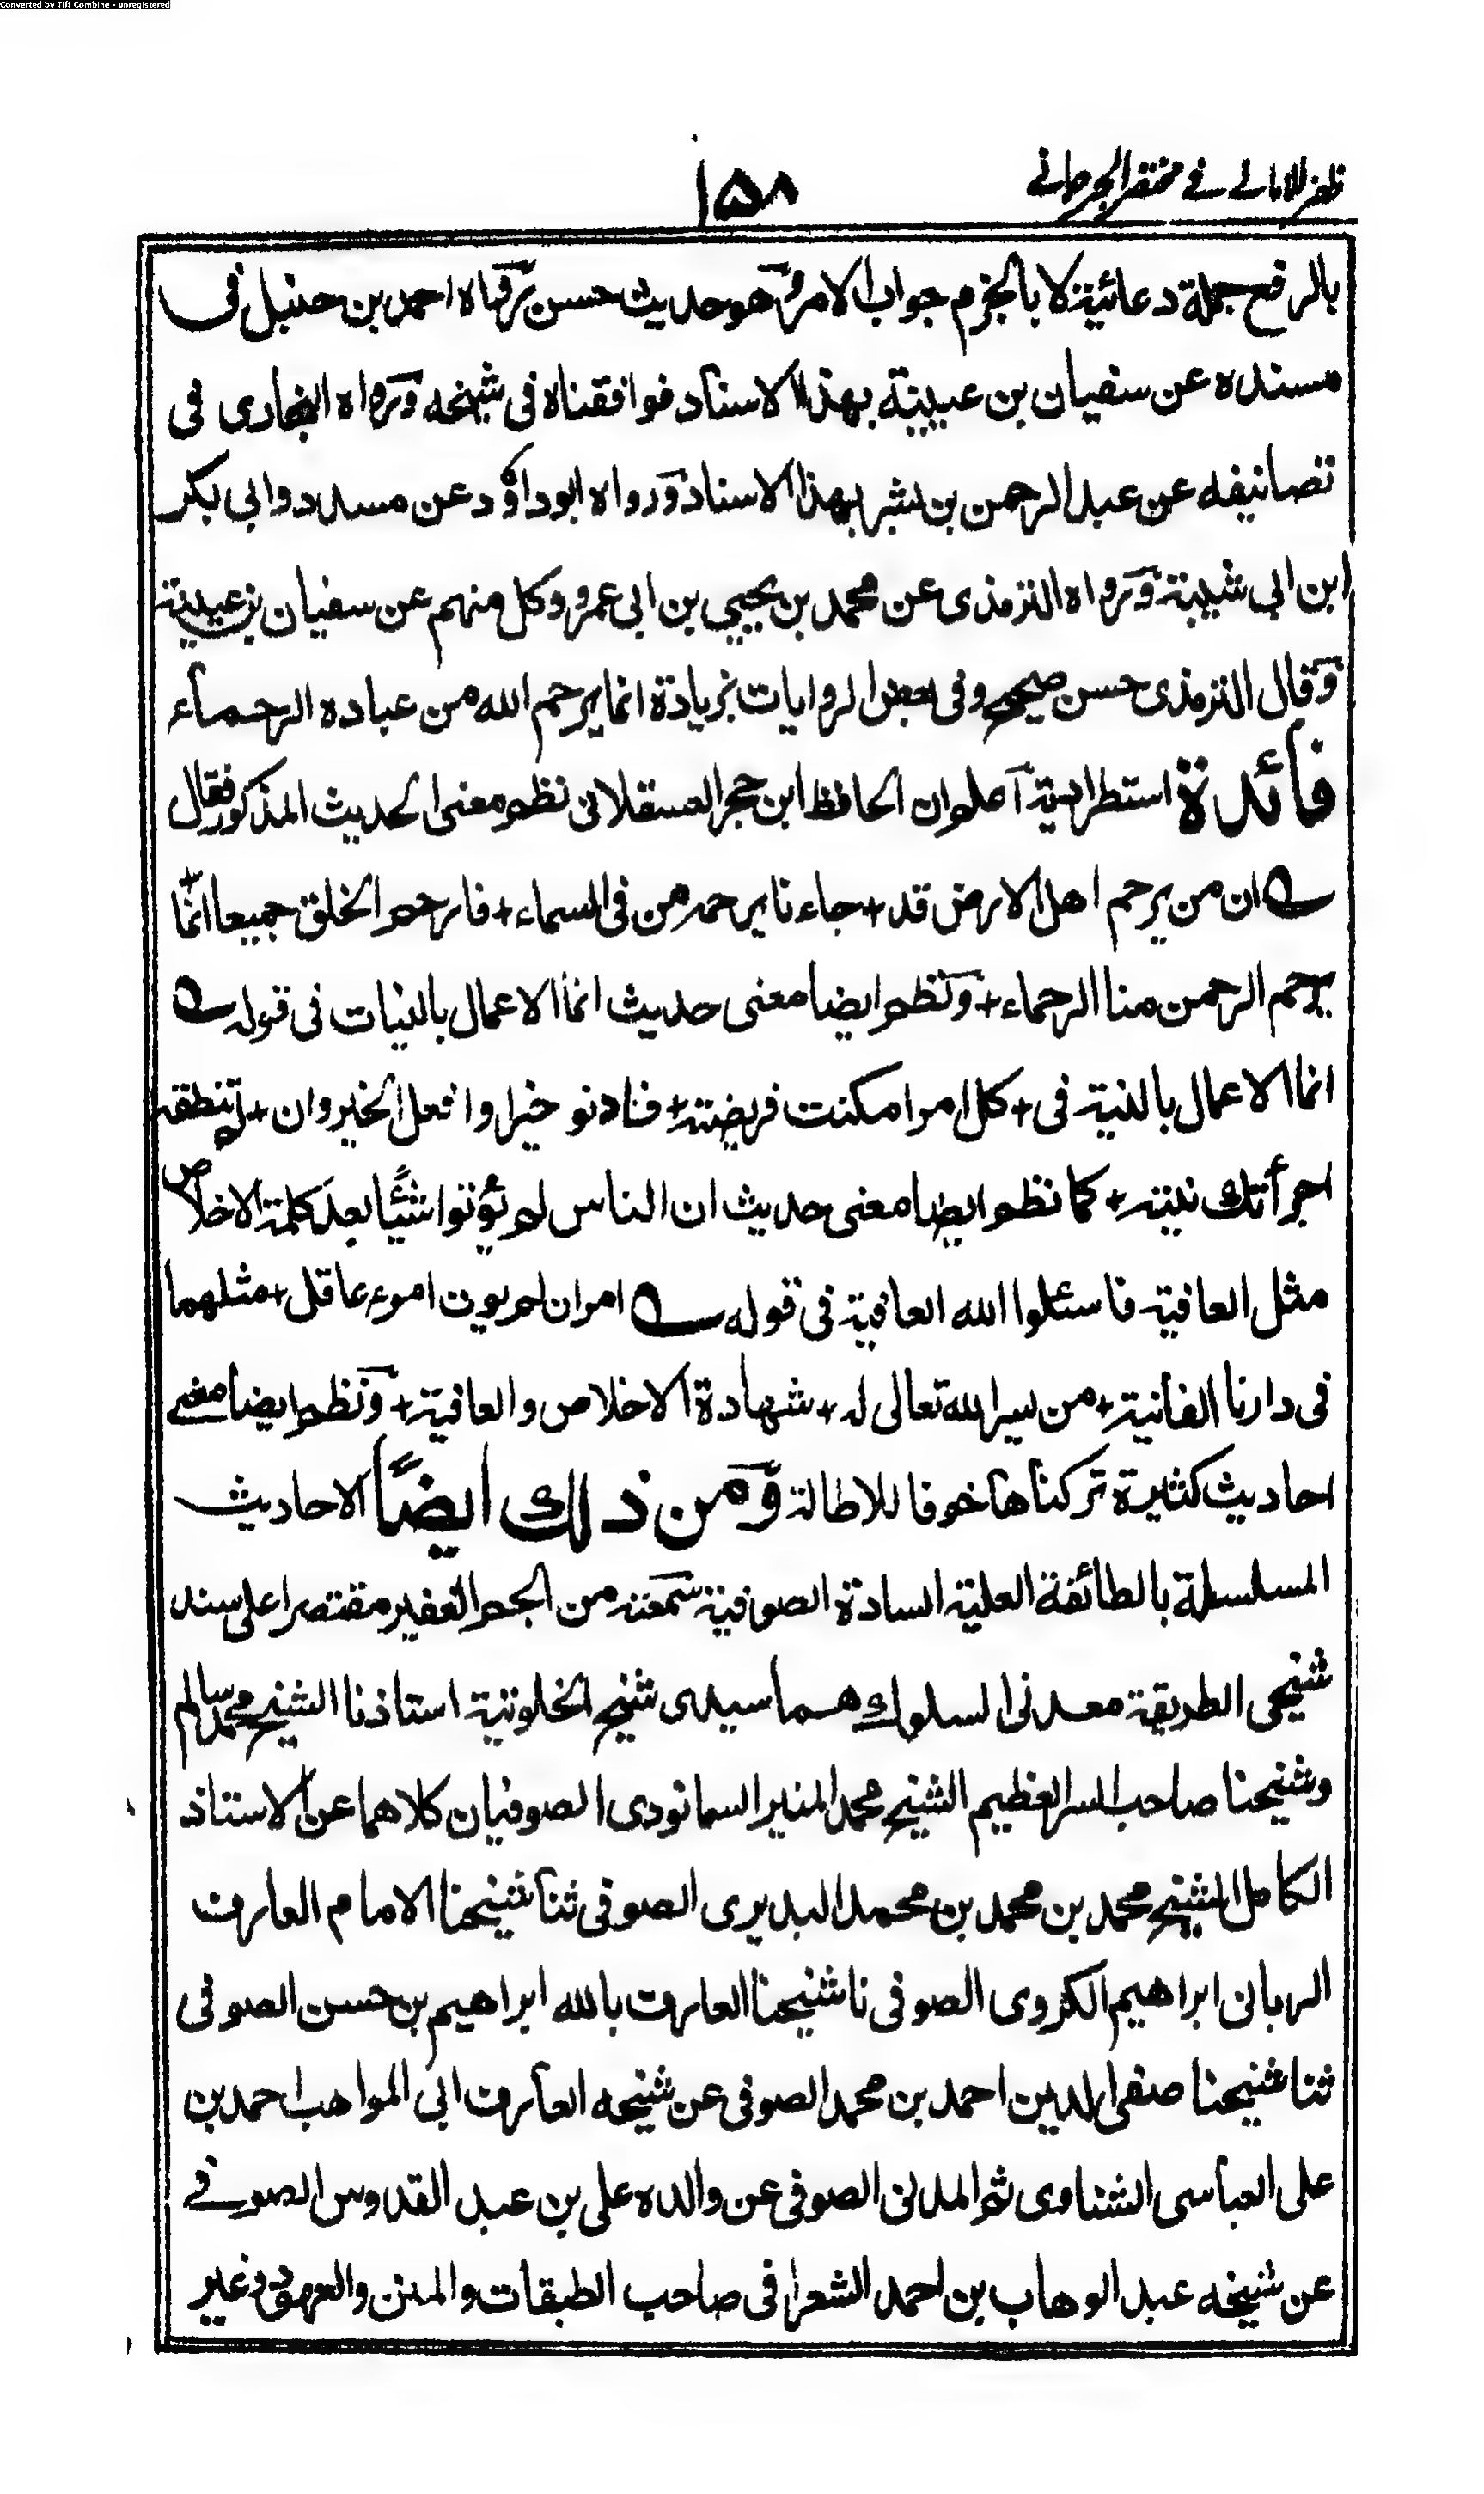 Converted by Tiff Combine - unregistered
ظفر الاماني في مختصر الجرجاني
١٥٨
بالرفع جملة دعائية لا بالجزم جواب الامر وهو حديث حسن رواه احمد بن حنبل في
مسنده عن سفيان بن عيينة بهذا الاسناد فوافقناه في شيخه ورواه البخاري في
تصانيفه عن عبد الرحمن بن بشر بهذا الاسناد ورواه ابوداؤد عن مسدد وابي بكر
ابن ابي شيبة ورواه الترمذي عن محمد بن يحيي بن ابي عمرو وكل منهم عن سفيان بن عيينة
وقال الترمذي حسن صحيح وفي بعض الروايات بزيادة انما يرحم الله من عباده الرحماء
فائدة استطرادية اعلم ان الحافظ ابن حجر العسقلاني نظم معنى الحديث المذكور فقال
ان من يرحم اهل الارض قد + جاءنا يرحمه من في السماء + فارحم الخلق جميعا انما +
يرحم الرحمن منا الرحماء + ونظم ايضا معنى حديث انما الاعمال بالنيات في قوله
انما الاعمال بالنية في + كل امر امكنت فريضته + فنادنو خيرا وافعل الخير وان + لم تنطقه
اجرأتك نيته + كما نظم ايضا معنى حديث ان الناس لم يؤتوا شيًا بعد كلمة الاخلاص
مثل العافية فاسئلوا الله العافية في قوله امران لم يوت امرء عاقل + مثلهما
في دارنا الفانية + من يسر الله تعالى له + شهادة الاخلاص والعافية + ونظم ايضا معنى
احاديث كثيرة تركناها خوفا للاطالة ومن ذلك ايضاً الاحاديث
المسلسلة بالطائفة العلية السادة الصوفية سمعته من الجم الغفير مقتصرا على سند
شيخي الطريقة معدني السلوك هما سيدي شيخ الخلوتية استاذنا الشيخ محمد سالم
وشيخنا صاحب السر العظيم الشيخ محمد المنير السمانودي الصوفيان كلاهما عن الاستاذ
الكامل الشيخ محمد بن محمد بن محمد البديري الصوفي ثنا شيخنا الامام العارف
الرباني ابراهيم الكروى الصوفي نا شيخنا العارف بالله ابراهيم بن حسن الصوفي
ثنا شيخنا صفي الدين احمد بن محمد الصوفي عن شيخه العارف ابي المواهب احمد بن
على العباسي الشناوي ثم المدني الصوفي عن والده علي بن عبد القدوس الصوفي
عن شيخه عبد الوهاب بن احمد الشعرافي صاحب الطبقات والمنن والعهود وغير